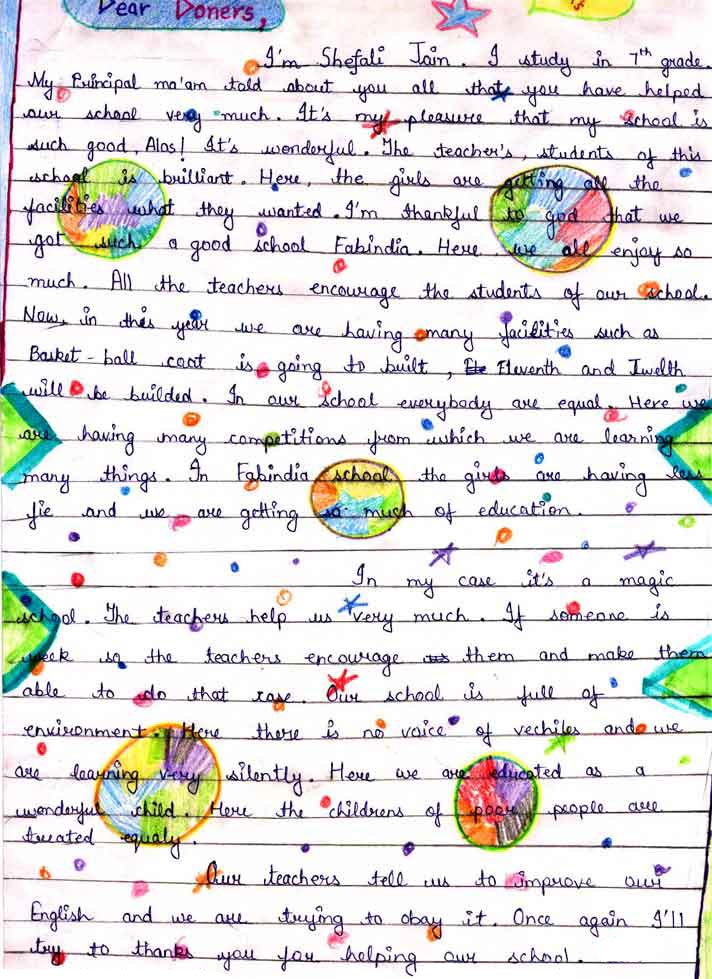 Dear Doners,
I'm Shefali Jain. I study in 7th grade.
My Principal ma'am told about you all that you have helped
our school very much. It's my pleasure that my school is
such good, Alas! It's wonderful. The teacher's, students of this
school is brilliant. Here, the girls are getting all the
facilities what they wanted. I'm thankful to god that we
got such a good school Fabindia. Here we all enjoy so
much. All the teachers encourage the students of our school.
Now, in this year we are having many facilities such as
Basket-ball coat is going to built, Eleventh and Twelth
will be builded. In our school everybody are equal. Here we
are having many competitions from which we are learning
many things. In Fabindia school the girls are having less
fie and we are getting so much of education.
In my case it's a magic
school. The teachers help us very much. If someone is
week so the teachers encourage them and make them
able to do that case. Our school is full of
environment. Here there is no voice of vechiles and we
are learning very silently. Here we are educated as a
wonderful child. Here the childrens of poor people are
treated equaly.
Our teachers tell us to improve our
English and we are trying to obay it. Once again I'll
try to thanks you for helping our school.